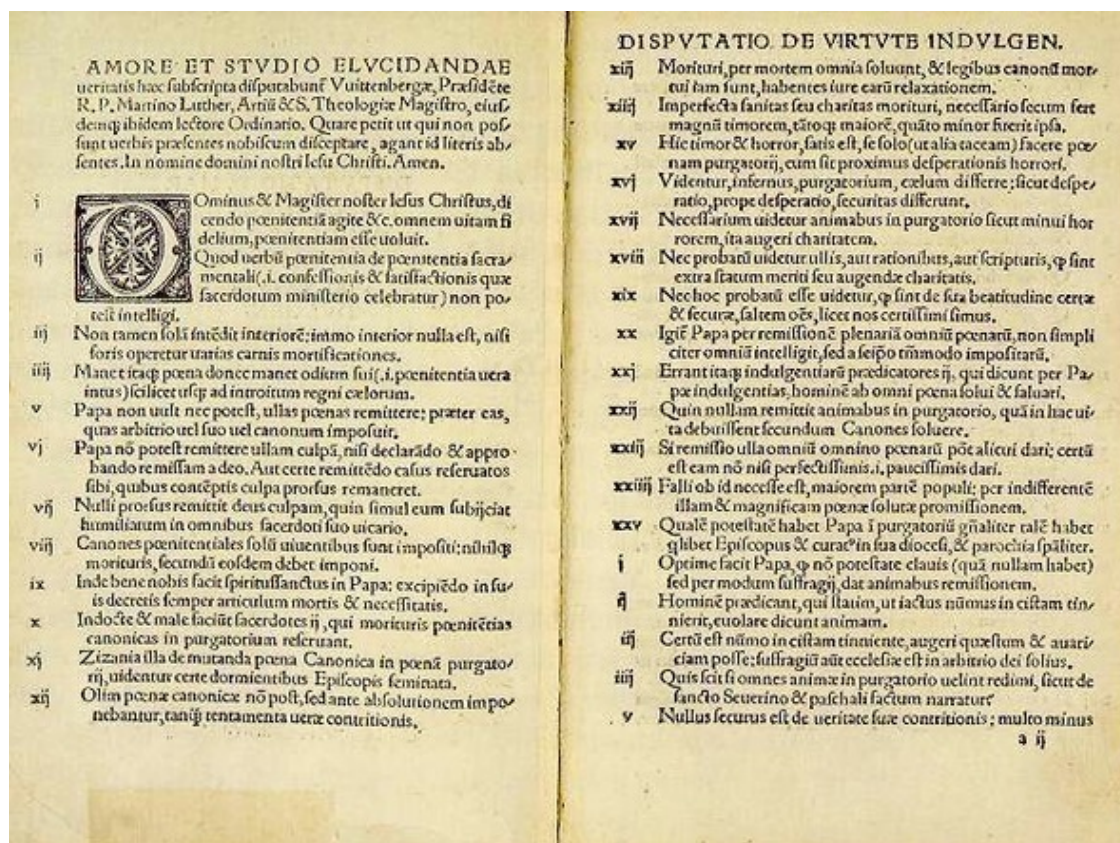 AMORE ET STVDIO ELVCIDANDAE
ueritatis hæc subscripta disputabunt Vuittenbergæ, Præsidẽte
R. P. Martino Luther, Artiũ & S. Theologiæ Magistro, eius-
demq́; ibidem lectore Ordinario. Quare petit ut qui non pos-
sunt uerbis præsentes nobiscum disceptare, agant id literis ab-
sentes. In nomine domini nostri Iesu Christi. Amen.
i DOminus & Magister noster Iesus Christus, di
cendo pœnitentiã agite &c. omnem uitam fi
delium, pœnitentiam esse uoluit.
ij Quod uerbũ pœnitentia de pœnitentia sacra-
mentali(.i. confessionis & satisfactionis quæ
sacerdotum ministerio celebratur) non po-
test intelligi.
iij Non tamen solã intẽdit interiorẽ: immo interior nulla est, nisi
foris operetur uarias carnis mortificationes.
iiij Manet itaq; pœna donec manet odium sui(.i. pœnitentia uera
intus) scilicet usq; ad introitum regni cælorum.
v Papa non uult nec potest, ullas pœnas remittere: præter eas,
quas arbitrio uel suo uel canonum imposuit.
vj Papa nõ potest remittere ullam culpã, nisi declarãdo & appro-
bando remissam a deo. Aut certe remittẽdo casus reseruatos
sibi, quibus contẽptis culpa prorsus remaneret.
vij Nulli prorsus remittit deus culpam, quin simul eum subijciat
humiliatum in omnibus sacerdoti suo uicario.
viij Canones pœnitentiales solũ uiuentibus sunt impositi: nihilq;
morituris, secundũ eosdem debet imponi.
ix Inde bene nobis facit spiritussanctus in Papa: excipiẽdo in su-
is decretis semper articulum mortis & necessitatis.
x Indocte & male faciũt sacerdotes ij, qui morituris pœnitẽtias
canonicas in purgatorium reseruant.
xj Zizania illa de mutanda pœna Canonica in pœnã purgato-
rij, uidentur certe dormientibus Episcopis seminata.
xij Olim pœnæ canonicæ nõ post, sed ante absolutionem impo-
nebantur, tanq̃ tentamenta ueræ contritionis.
DISPVTATIO DE VIRTVTE INDVLGEN.
xiij Morituri, per mortem omnia soluunt, & legibus canonũ mor-
tui iam sunt, habentes iure earũ relaxationem.
xiiij Imperfecta sanitas seu charitas morituri, necessario secum fert
magnũ timorem, tãtoq; maiorẽ, quãto minor fuerit ipsa.
xv Hic timor & horror, satis est, se solo (ut alia taceam) facere pœ-
nam purgatorij, cum sit proximus desperationis horrori.
xvj Videntur, infernus, purgatorium, cælum differre: sicut despe-
ratio, prope desperatio, securitas differunt.
xvij Necessarium uidetur animabus in purgatorio sicut minui hor
rorem, ita augeri charitatem.
xviij Nec probatũ uidetur ullis, aut rationibus, aut scripturis, q̃ sint
extra statum meriti seu augendæ charitatis.
xix Nec hoc probatũ esse uidetur, q̃ sint de sua beatitudine certæ
& securæ, saltem oẽs, licet nos certissimi simus.
xx Igit́ Papa per remissionẽ plenariã omniũ pœnarũ, non simpli
citer omniũ intelligit, sed a seip̃o tm̃modo impositarũ.
xxj Errant itaq; indulgentiarũ prædicatores ij, qui dicunt per Pa-
pæ indulgentias, hominẽ ab omni pœna solui & saluari.
xxij Quin nullam remittit animabus in purgatorio, quã in hac ui-
ta debuissent secundum Canones soluere.
xxiij Si remissio ulla omniũ omnino pœnarũ põt alicui dari; certũ
est eam nõ nisi perfectissimis.i. paucissimis dari.
xxiiij Falli ob id necesse est, maiorem partẽ populi: per indifferentẽ
illam & magnificam pœnæ solutæ promissionem.
xxv Qualẽ potestatẽ habet Papa ĩ purgatoriũ gñaliter talẽ habet
q̃libet Episcopus & curatꝰ in sua diocesi, & parochia sp̃aliter.
j Optime facit Papa, q̃ nõ potestate clauis (quã nullam habet)
sed per modum suffragij, dat animabus remissionem.
ij Hominẽ prædicant, qui statim, ut iactus nũmus in cistam tin-
nierit, euolare dicunt animam.
iij Certũ est nũmo in cistam tinniente, augeri quæstum & auari-
ciam posse: suffragiũ aũt ecclesiæ est in arbitrio dei solius.
iiij Quis scit si omnes animæ in purgatorio uelint redimi, sicut de
sancto Seuerino & paschali factum narratur?
v Nullus securus est de ueritate suæ contritionis; multo minus
a ij